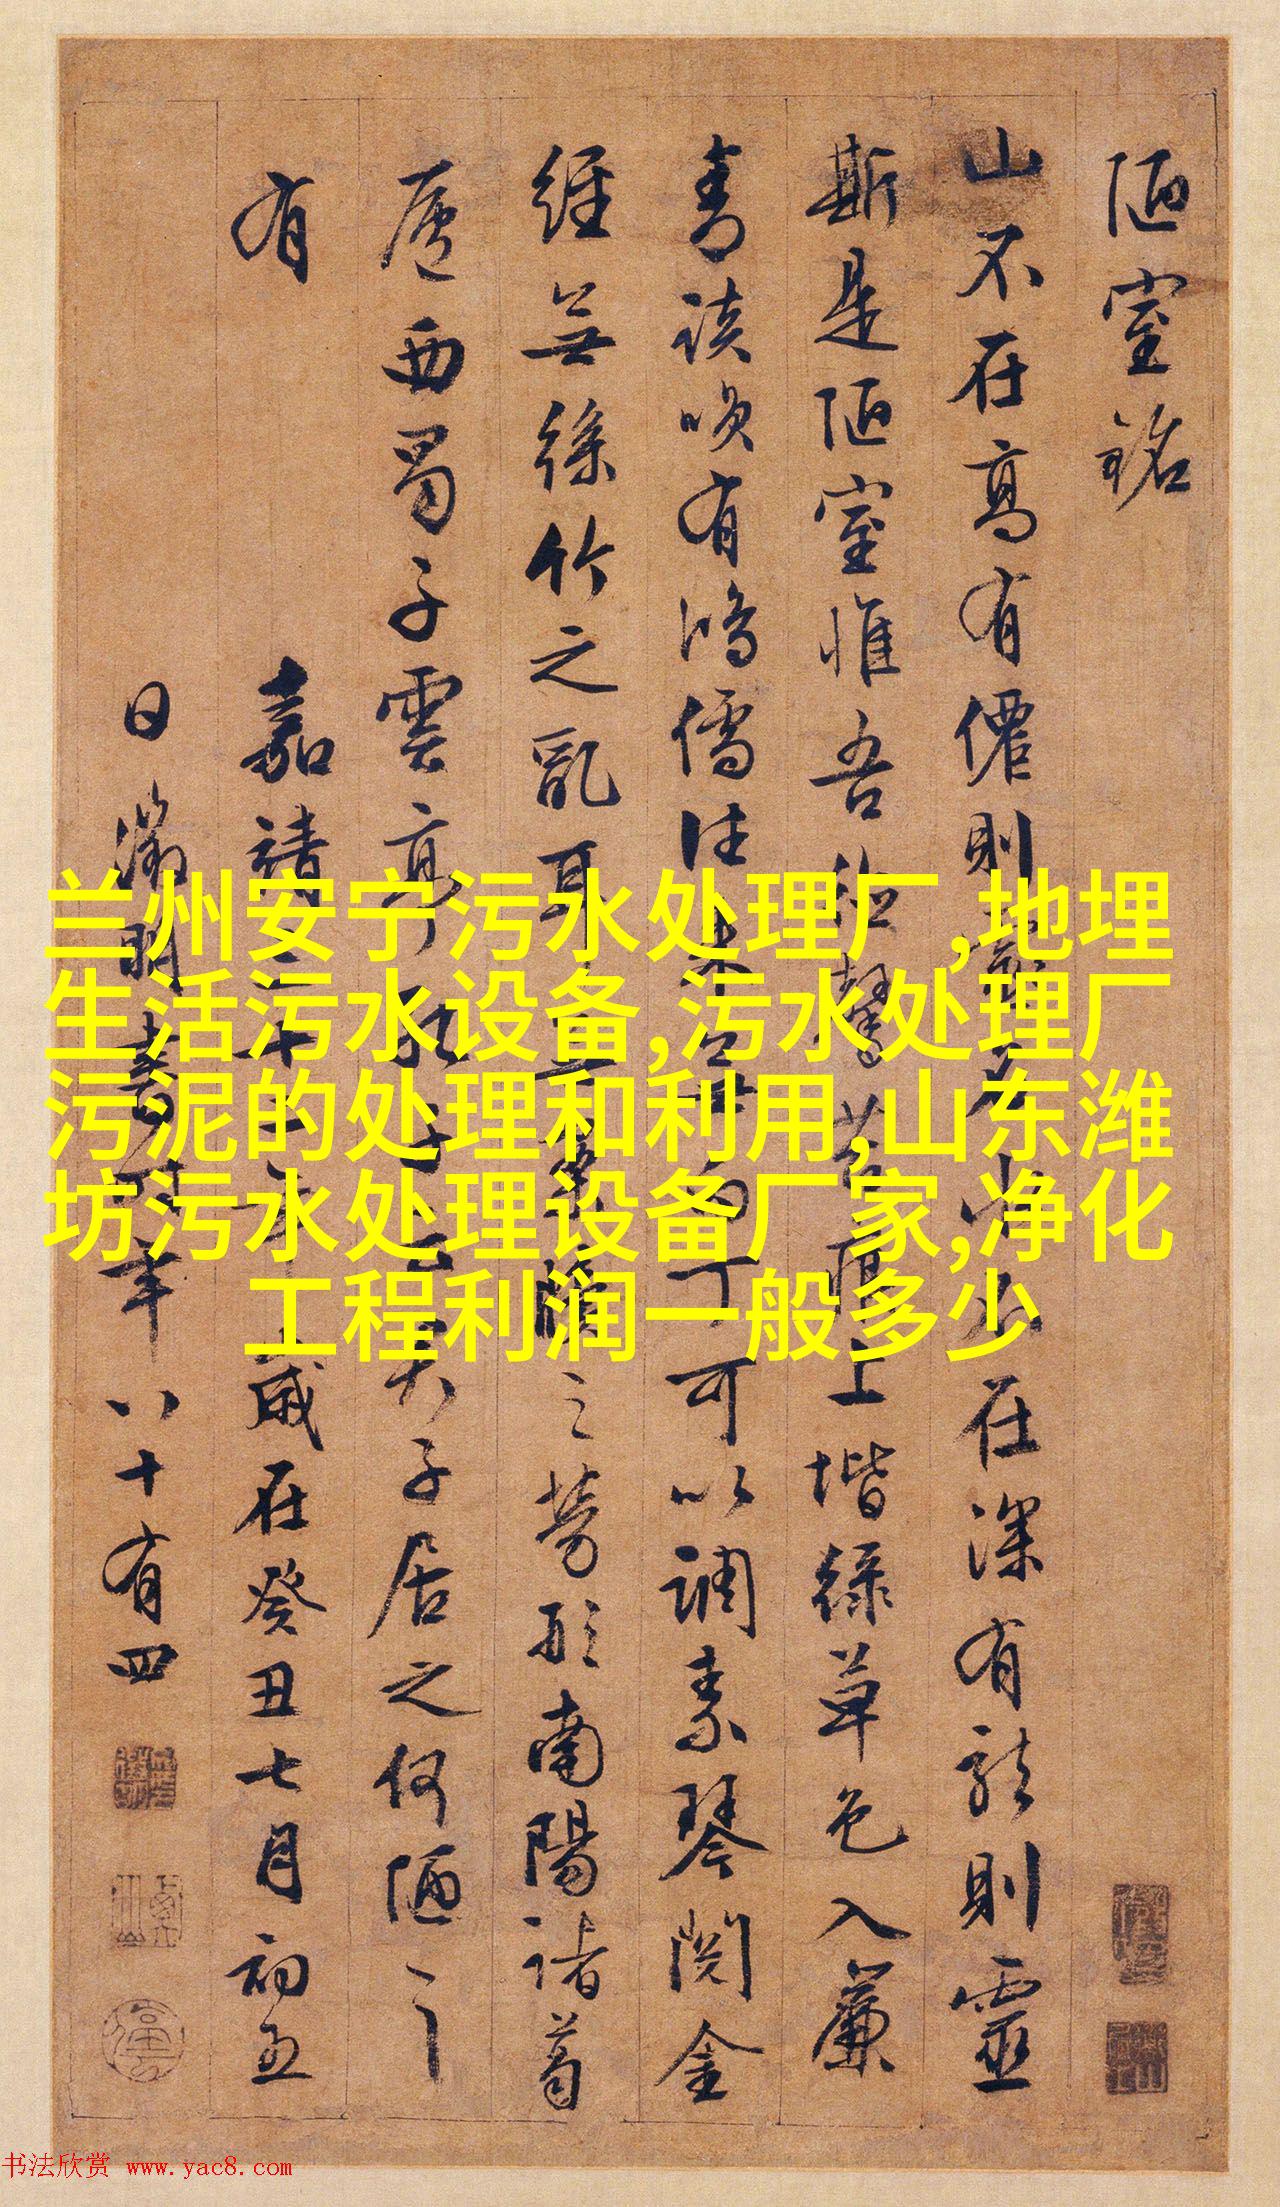 陋室銘
山不在高有僊則名水不在深有龍則靈
斯是陋室惟吾德馨苔痕上堦綠草色入簾
青談唉有鴻儒往來無白丁可以調素琴閱金
經無絲竹之亂耳無案牘之勞形南陽諸葛
廬西蜀子雲亭孔子云君子居之何陋之
有
嘉靖三十二年歲在癸丑七月初五
日徵明書時年八十有四
兰州安宁污水处理厂,地埋
生活污水设备,污水处理厂
污泥的处理和利用,山东潍
坊污水处理设备厂家,净化
工程利润一般多少
书法欣赏 www.yac8.com